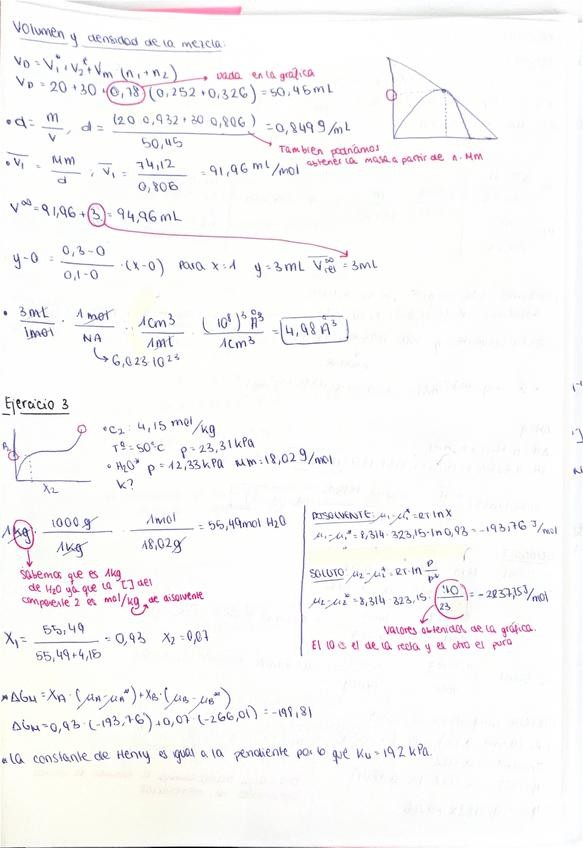 Volumen y densidad de la mezcla:
V₀ = V₁*, V₂*, + Vₘ (n₁+n₂)
V₀ = 20 + 30 + 0,78 (0,252 + 0,326) = 50,45 mL
Dada en la gráfica
• d = m/v, d = (20·0,932 + 30·0,806)/50,45 = 0,849 g/mL
También podríamos
obtener la masa a partir de n·Mm
V̄₁ = Mm/d ; V̄₁ = 74,12/0,806 = 91,96 mL/mol
V^∞ = 91,96 + 3 = 94,96 mL
y-0 = (0,3-0)/(0,1-0) · (x-0) para x=1 y = 3mL V̄^∞ rel = 3mL
• 3mL/1mol · 1mol/NA · 1cm³/1mL · (10⁸)³ Å³/1cm³ = 4,98 Å³
6,023·10²³
Ejercicio 3
P₂
X₂
• C₂: 4,15 mol/kg
Tº = 50ºC p = 23,31 kPa
• H₂O* p = 12,33 kPa Mm = 18,02 g/mol
K?
1kg · 1000g/1kg · 1mol/18,02g = 55,49 mol H₂O
Sabemos que es 1kg
de H₂O ya que la [] del
componente 2 es mol/kg de disolvente
X₁ = 55,49/(55,49+4,15) = 0,93 X₂ = 0,07
DISOLVENTE: μ₁-μ₁* = RT ln X
μ₁-μ₁* = 8,314·323,15·ln 0,93 = -193,76 J/mol
SOLUTO: μ₂-μ₂* = RT·ln P/P*
μ₂-μ₂* = 8,314·323,15· 10/23 = -2237,15 J/mol
Valores obtenidos de la gráfica.
El 10 es el de la recta y el otro el puro
* ΔGM = XA·(μA-μA*) + XB·(μB-μB*)
ΔGM = 0,93·(-193,76) + 0,07·(-266,01) = -198,81
* La constante de Henry es igual a la pendiente por lo que KH = 192 kPa.